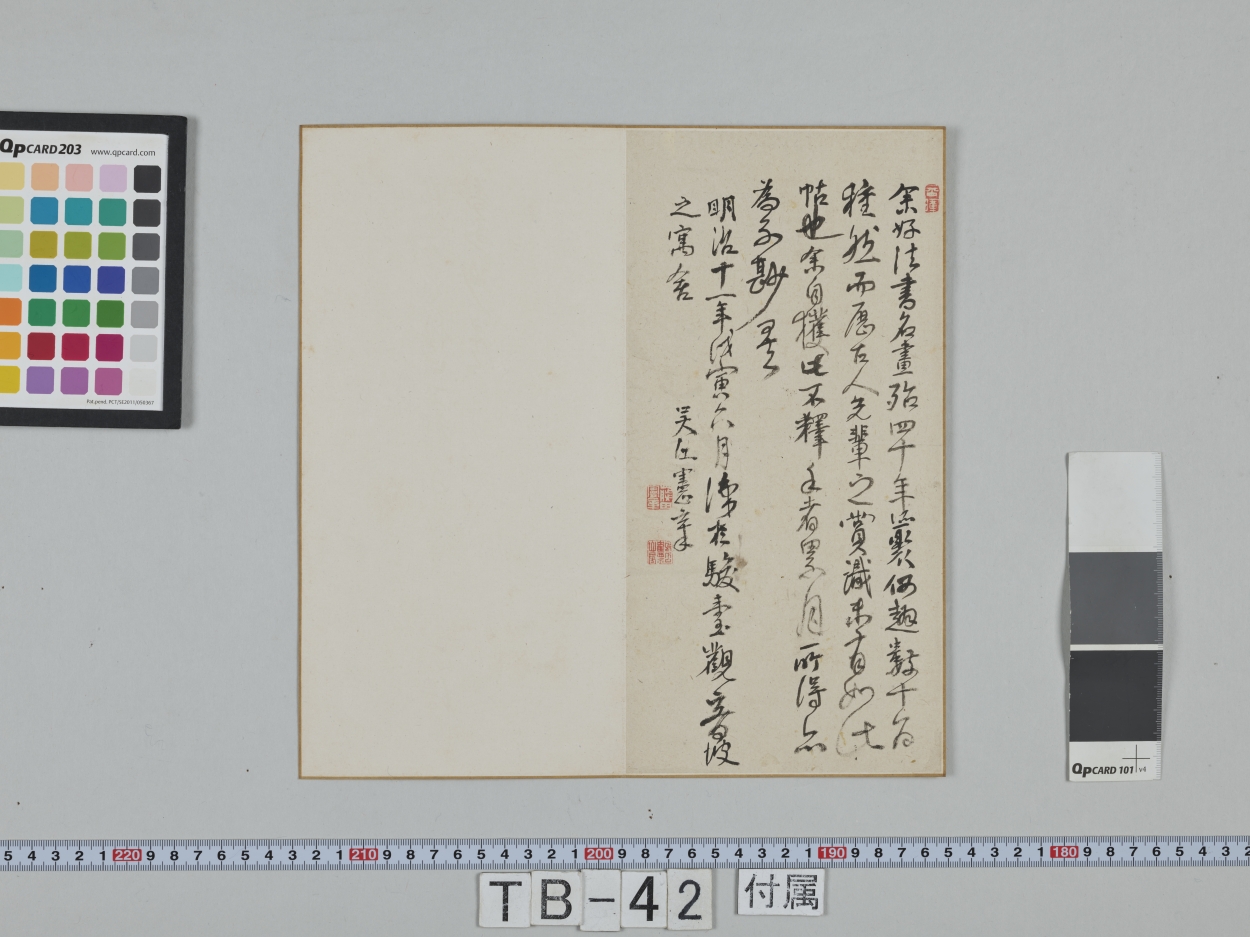 余好法書名畫殆四十年所裒仍趣數十百
種然而歴古人先輩之賞識未有如此
帖也余自獲此不釋手者累月所得亦
為不尠
明治十一年戊寅六月書於駿臺觀音坡
之寓舍
吴江憲章
QpCARD 203 www.qpcard.com
Pat.pend. PCT/SE2011/050367
QpCARD 101 v4
5 4 3 2 1 220 9 8 7 6 5 4 3 2 1 210 9 8 7 6 5 4 3 2 1 200 9 8 7 6 5 4 3 2 1 190 9 8 7 6 5 4 3 2 1 180 9 8 7 6 5 4 3 2
TB-42 付属